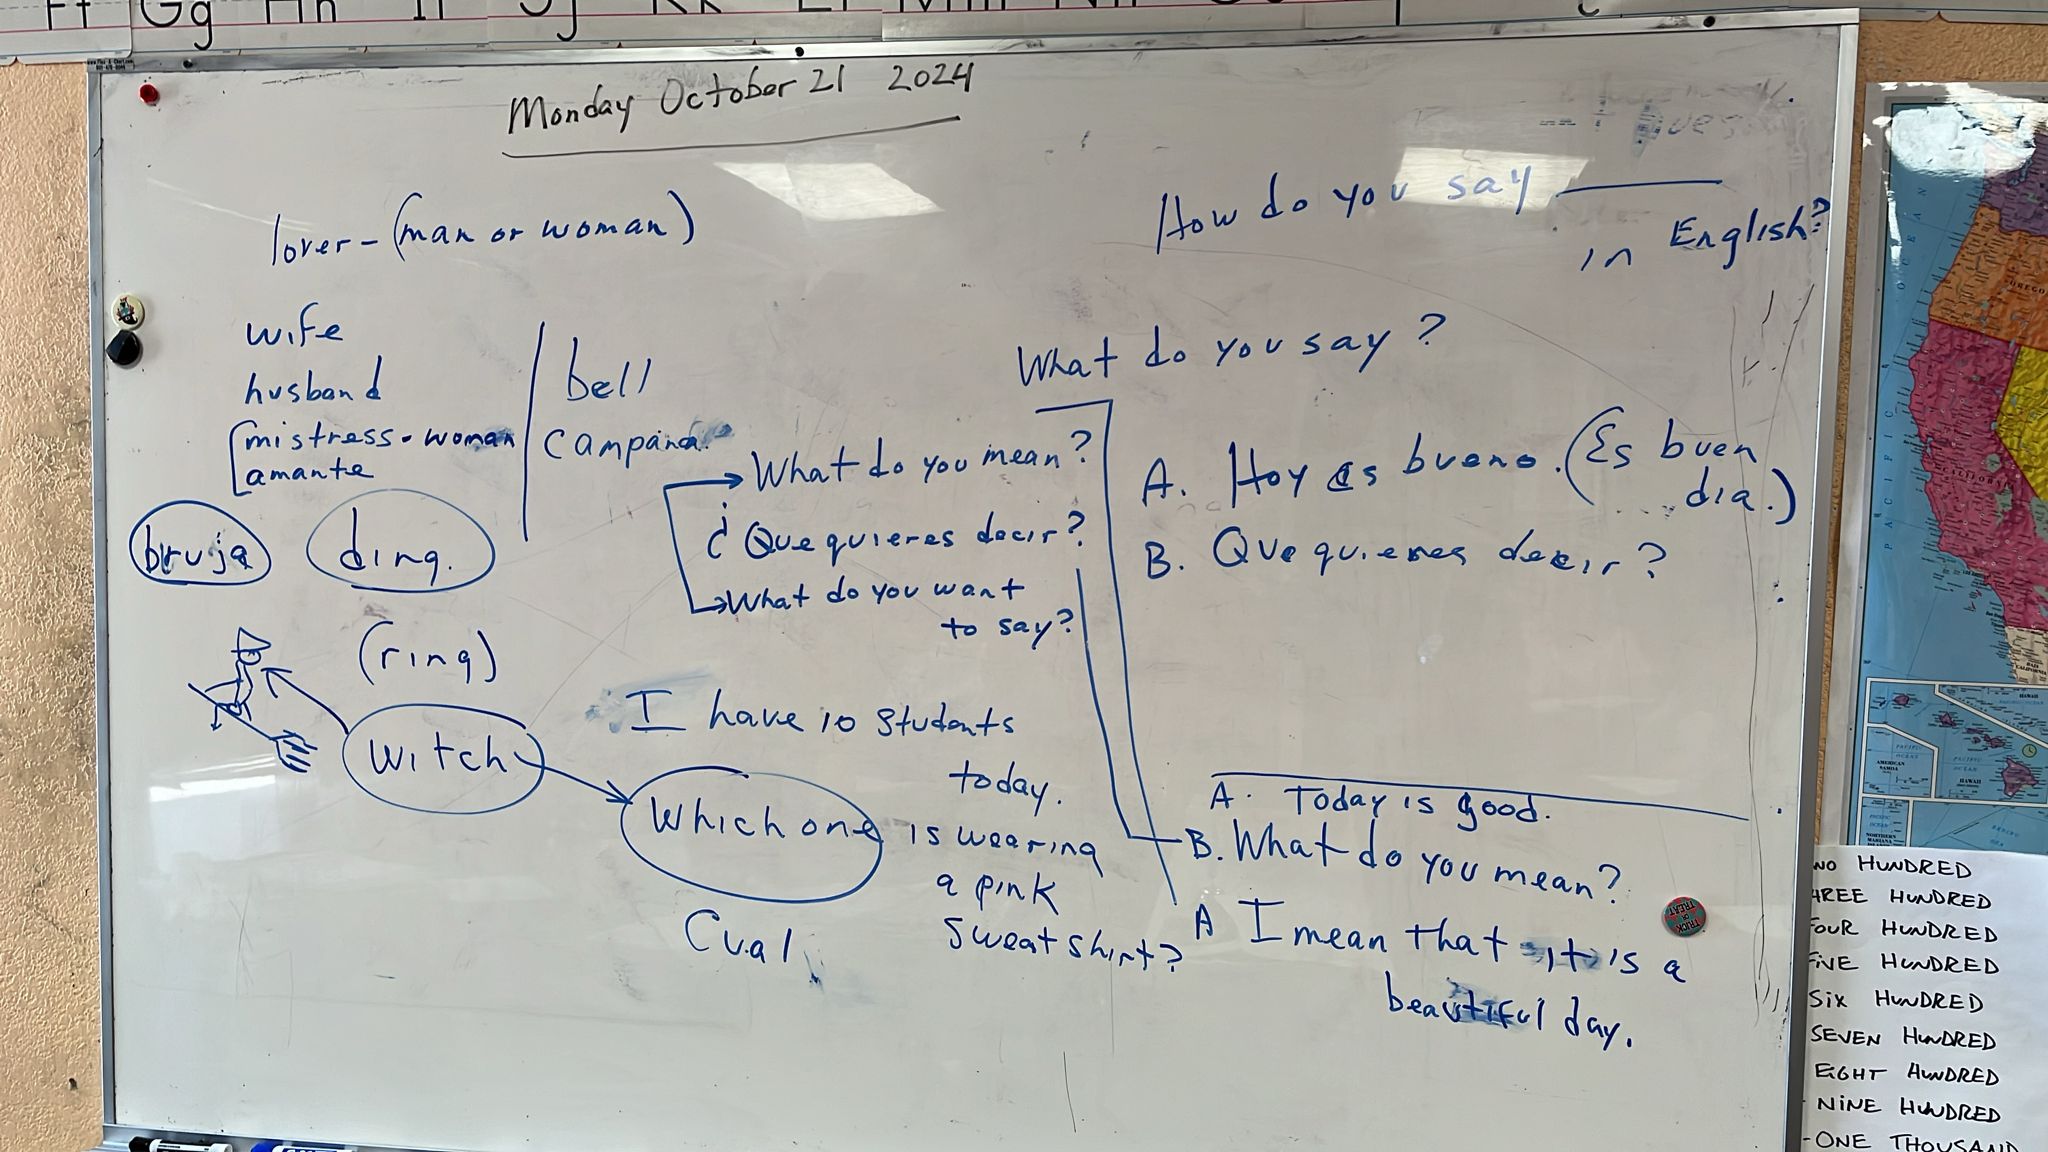 Ff Gg Hh
Monday October 21 2024
lover - (man or woman)
How do you say ______
in English?
wife
husband
mistress - woman
amante
bell
campana
What do you say?
What do you mean?
¿Que quieres decir?
What do you want
to say?
A. Hoy es bueno. (Es buen
dia.)
B. Que quieres decir?
bruja
ding.
(ring)
witch
I have 10 students
today.
Which one is wearing
a pink
sweatshirt?
Cual
A. Today is good.
B. What do you mean?
A I mean that it is a
beautiful day.
TRICK
OR
TREAT
OREGON
CALIFORNIA
PACIFIC
OCEAN
HAWAII
AMERICAN
SAMOA
PACIFIC
OCEAN
HAWAII
WO HUNDRED
HREE HUNDRED
FOUR HUNDRED
FIVE HUNDRED
SIX HUNDRED
SEVEN HUNDRED
EIGHT HUNDRED
NINE HUNDRED
-ONE THOUSAND